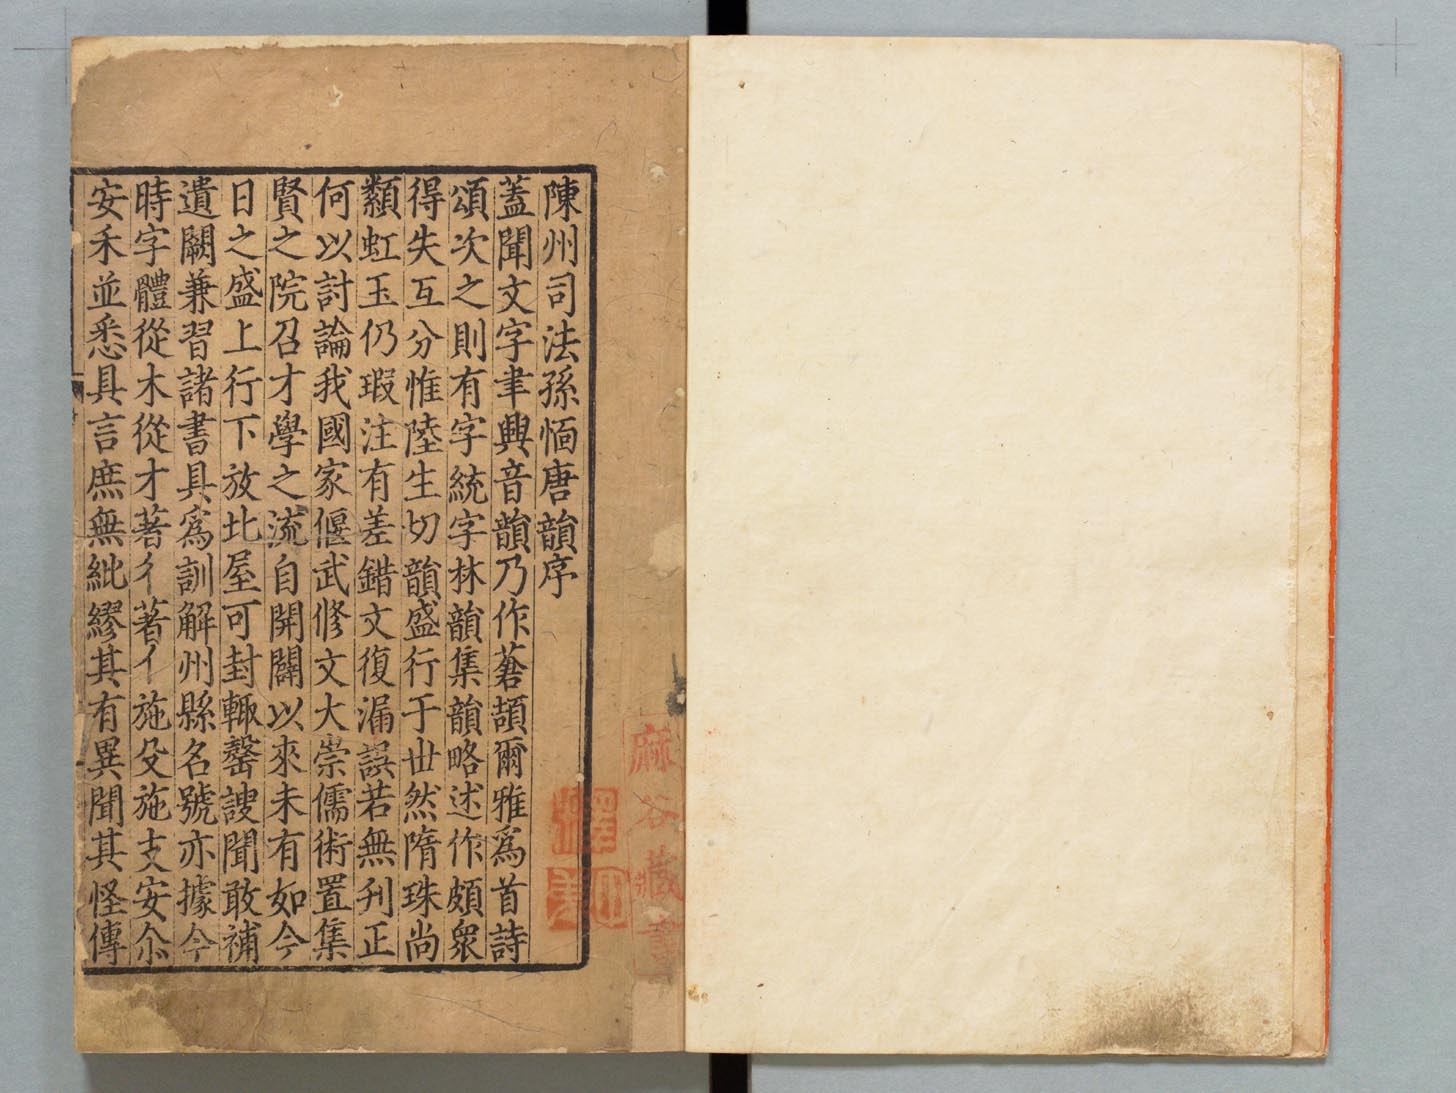 陳州司法孫愐唐韻序
蓋聞文字聿興音韻乃作蒼頡爾雅爲首詩
頌次之則有字統字林韻集韻略述作頗衆
得失互分惟陸生切韻盛行于世然隋珠尚
纇虹玉仍瑕注有差錯文復漏誤若無刋正
何以討論我國家偃武修文大崇儒術置集
賢之院召才學之流自開闢以來未有如今
日之盛上行下放比屋可封輙罄謏聞敢補
遺闕兼習諸書具爲訓解州縣名號亦據今
時字體從木從才著彳著亻施殳施攴安尒
安禾並悉具言庶無紕繆其有異聞其怪傳
麻谷藏書